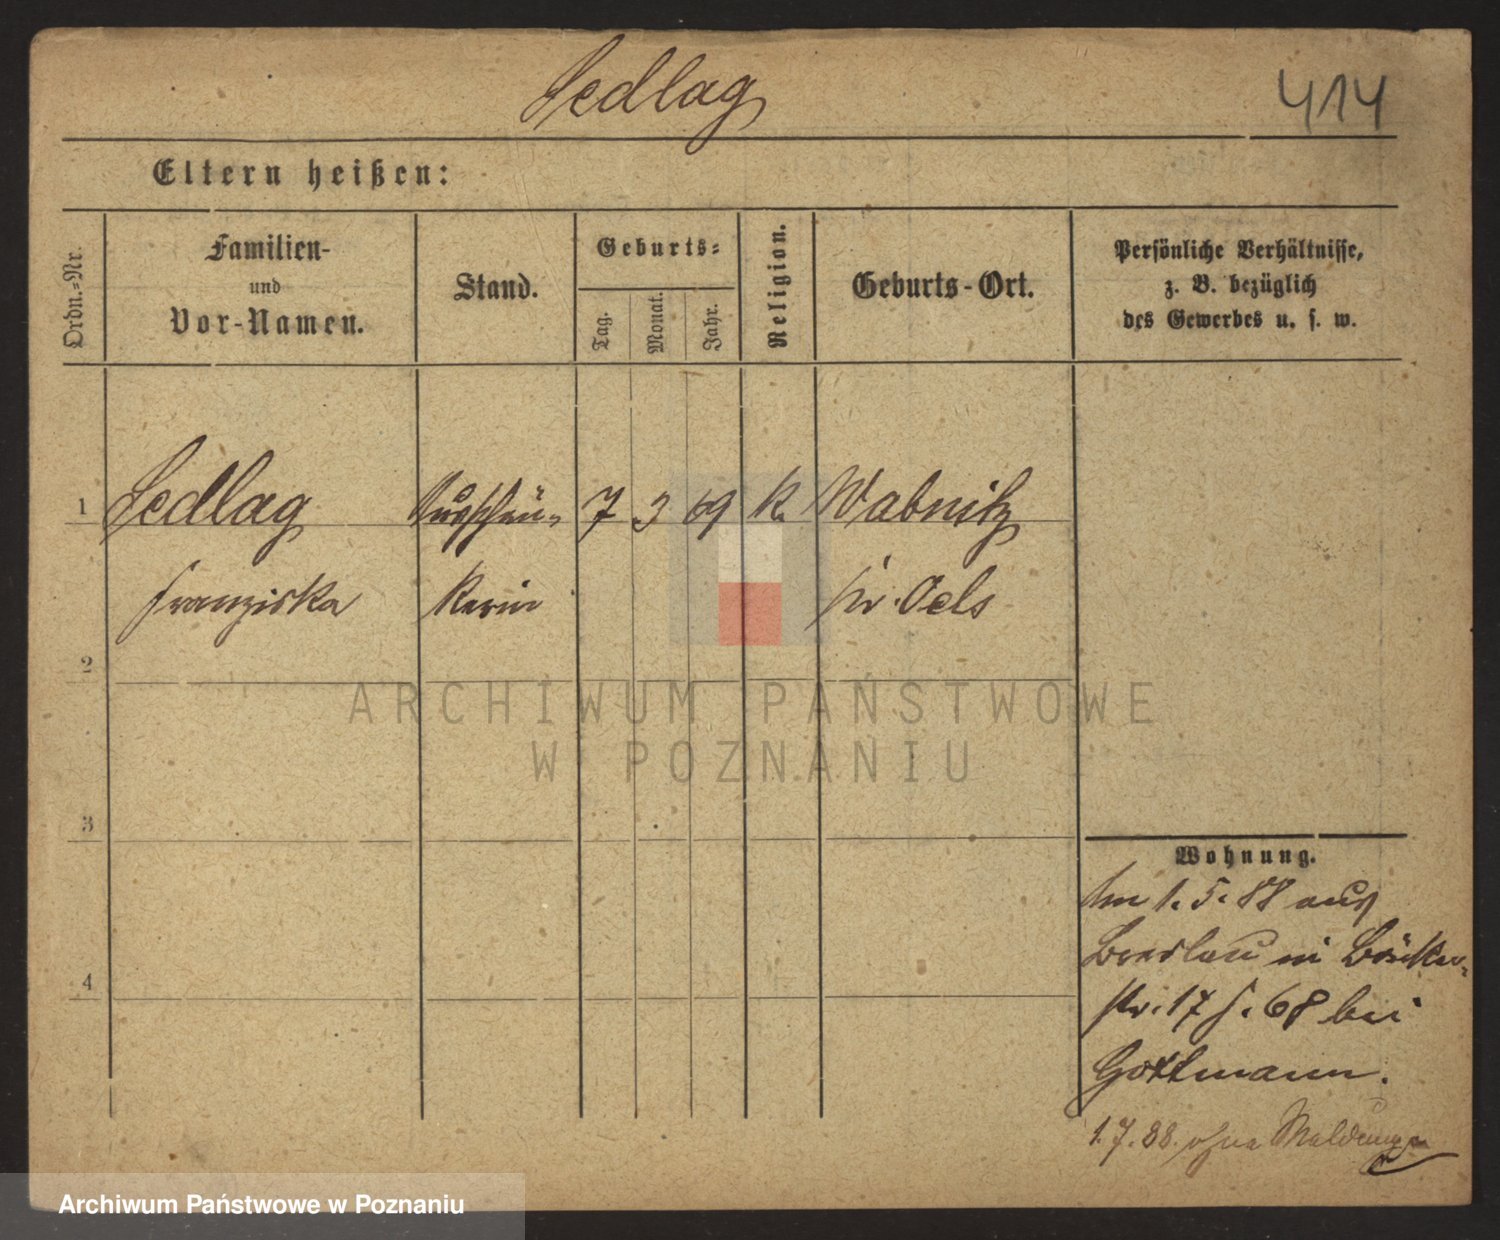 Sedlag
414
Eltern heißen:
Ordn.-Nr.
Familien-
und
Vor-Namen.
Stand.
Geburts-
Tag.
Monat.
Jahr.
Religion.
Geburts-Ort.
Persönliche Verhältnisse,
z. B. bezüglich
des Gewerbes u. s. w.
1 Sedlag 7 3 69 k. Wabnitz
Franziska kerin Kr. Oels
2
ARCHIWUM PAŃSTWOWE
W POZNANIU
3
4
Wohnung.
Am 1.5.88 aus
Breslau in Bäcker-
str. 17 b. 68 bei
Gottmann.
1.7.88. ohne Meldung
Archiwum Państwowe w Poznaniu